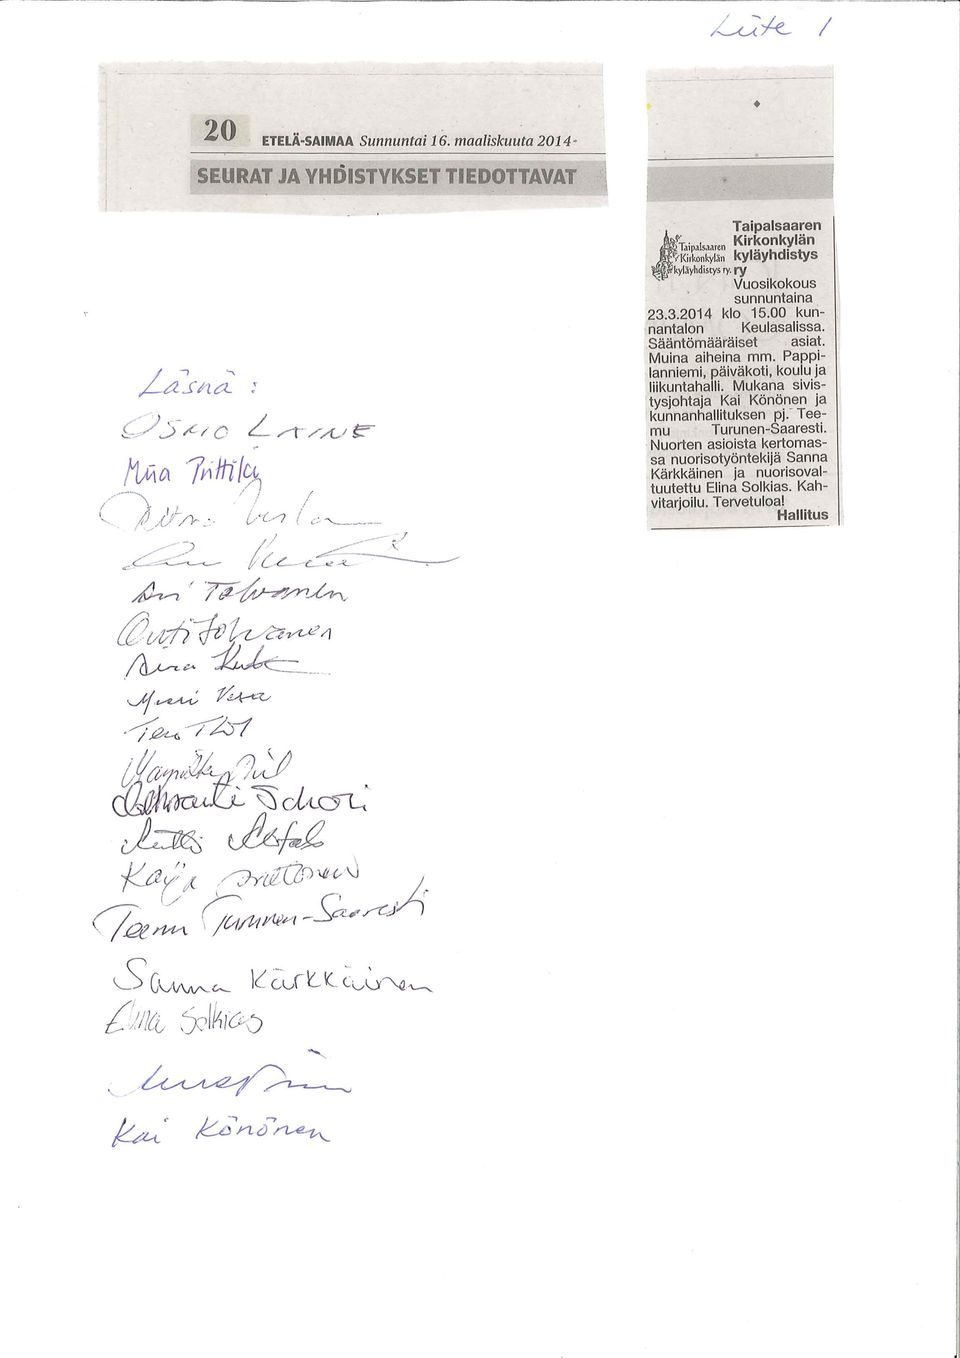 Liite 1
20 ETELÄ-SAIMAA Sunnuntai 16. maaliskuuta 2014
SEURAT JA YHDISTYKSET TIEDOTTAVAT
Taipalsaaren
Kirkonkylän
kyläyhdistys ry.
Taipalsaaren
Kirkonkylän
kyläyhdistys
ry
Vuosikokous
sunnuntaina
23.3.2014 klo 15.00 kun-
nantalon Keulasalissa.
Sääntömääräiset asiat.
Muina aiheina mm. Pappi-
lanniemi, päiväkoti, koulu ja
liikuntahalli. Mukana sivis-
tysjohtaja Kai Könönen ja
kunnanhallituksen pj. Tee-
mu Turunen-Saaresti.
Nuorten asioista kertomas-
sa nuorisotyöntekijä Sanna
Kärkkäinen ja nuorisoval-
tuutettu Elina Solkias. Kah-
vitarjoilu. Tervetuloa!
Hallitus
Läsnä :
OSMO LAINE
Miia Prittilä
Ari Tolvanen
Outi Tolvanen
Schori
Kaija
Teemu Turunen-Saaresti
Sanna Kärkkäinen
Elina Solkias
Kai Könönen